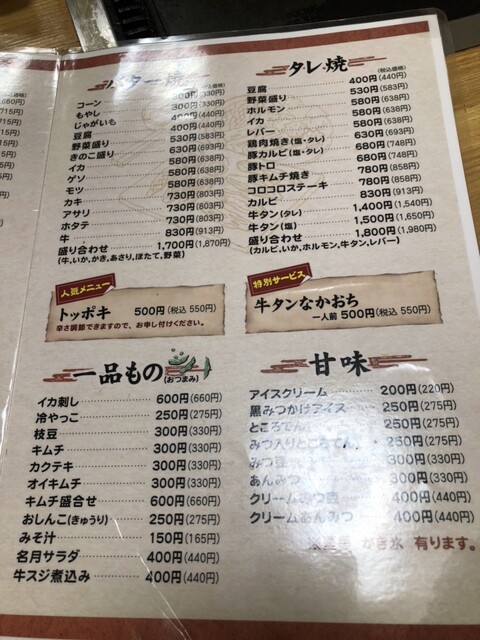 バター焼
(税込価格)
コーン 300円(330円)
もやし 300円(330円)
じゃがいも 400円(440円)
豆腐 400円(440円)
野菜盛り 530円(583円)
きのこ盛り 630円(693円)
イカ 580円(638円)
ゲソ 580円(638円)
モツ 580円(638円)
カキ 730円(803円)
アサリ 730円(803円)
ホタテ 730円(803円)
牛 830円(913円)
盛り合わせ 1,700円(1,870円)
(牛,いか,かき,あさり,ほたて,野菜)
人気メニュー
トッポキ 500円(税込 550円)
辛さ調節できますので、お申し付けください。
一品もの
(おつまみ)
イカ刺し 600円(660円)
冷やっこ 250円(275円)
枝豆 300円(330円)
キムチ 300円(330円)
カクテキ 300円(330円)
オイキムチ 300円(330円)
キムチ盛合せ 600円(660円)
おしんこ(きゅうり) 250円(275円)
みそ汁 150円(165円)
名月サラダ 400円(440円)
牛スジ煮込み 400円(440円)
タレ焼
(税込価格)
豆腐 400円(440円)
野菜盛り 530円(583円)
ホルモン 580円(638円)
イカ 580円(638円)
レバー 580円(638円)
鶏肉焼き(塩・タレ) 630円(693円)
豚カルビ(塩・タレ) 680円(748円)
豚トロ 680円(748円)
豚キムチ焼き 780円(858円)
コロコロステーキ 780円(858円)
カルビ 830円(913円)
牛タン(タレ) 1,400円(1,540円)
牛タン(塩) 1,500円(1,650円)
盛り合わせ 1,800円(1,980円)
(カルビ,いか,ホルモン,牛タン,レバー)
特別サービス
牛タンなかおち
一人前 500円(税込 550円)
甘味
アイスクリーム 200円(220円)
黒みつかけアイス 250円(275円)
ところてん 250円(275円)
みつ入りところてん 250円(275円)
みつ豆 300円(330円)
あんみつ 300円(330円)
クリームみつ豆 400円(440円)
クリームあんみつ 400円(440円)
かき氷 有ります。